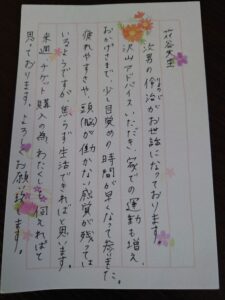 花谷先生
次男の伶治がお世話になっております。
りょうじ
沢山アドバイスいただき、家での運動も増え、
おかげさまで、少し目覚めの時間が早くなって参りました。
疲れやすさや、頭(脳)が働かない感覚が残っては
いるようですが、焦らず生活できればと思います。
来週、チケット購入の為、わたくしも伺えればと
思っております。よろしくお願い致します。